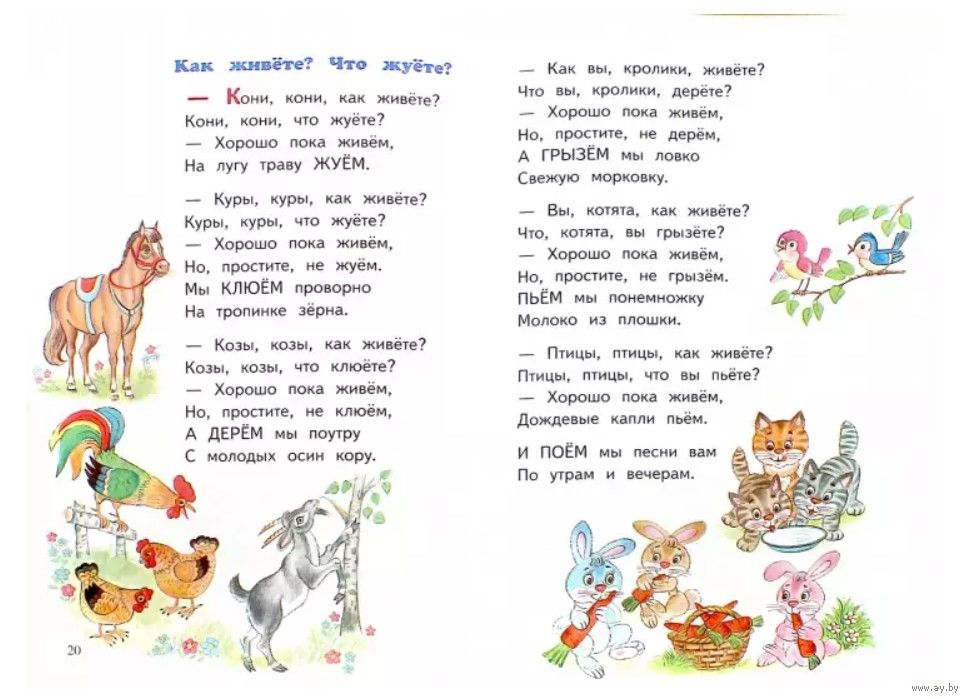 Как живёте? Что жуёте?
— Кони, кони, как живёте?
Кони, кони, что жуёте?
— Хорошо пока живём,
На лугу траву ЖУЁМ.
— Куры, куры, как живёте?
Куры, куры, что жуёте?
— Хорошо пока живём,
Но, простите, не жуём.
Мы КЛЮЁМ проворно
На тропинке зёрна.
— Козы, козы, как живёте?
Козы, козы, что клюёте?
— Хорошо пока живём,
Но, простите, не клюём,
А ДЕРЁМ мы поутру
С молодых осин кору.
20
— Как вы, кролики, живёте?
Что вы, кролики, дерёте?
— Хорошо пока живём,
Но, простите, не дерём,
А ГРЫЗЁМ мы ловко
Свежую морковку.
— Вы, котята, как живёте?
Что, котята, вы грызёте?
— Хорошо пока живём,
Но, простите, не грызём.
ПЬЁМ мы понемножку
Молоко из плошки.
— Птицы, птицы, как живёте?
Птицы, птицы, что вы пьёте?
— Хорошо пока живём,
Дождевые капли пьём.
И ПОЁМ мы песни вам
По утрам и вечерам.
www.ay.by